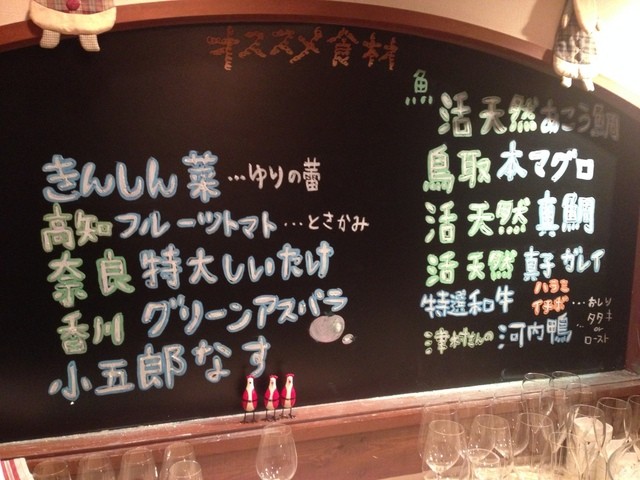 オススメ食材
きんしん菜…ゆりの蕾
高知フルーツトマト…とさかみ
奈良特大しいたけ
香川グリーンアスパラ
小五郎なす
魚
活天然あこう鯛
鳥取本マグロ
活天然真鯛
活天然真子ガレイ
特選和牛 ハラミ
イチボ …おしり
津村さんの河内鴨 …タタキ
or
ロースト